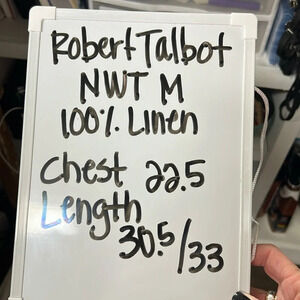 Robert Talbot
NWT M
100% Linen
Chest 22.5
Length
30.5/33